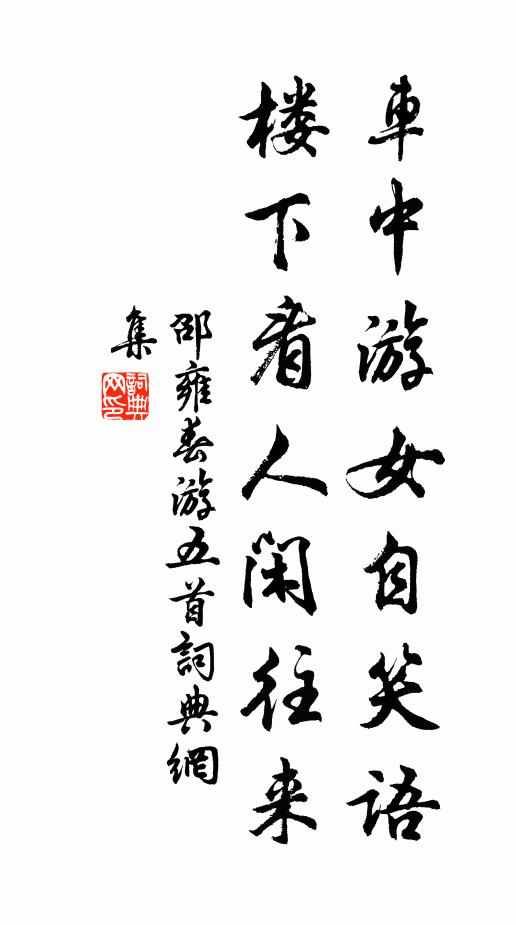 車中游女自笑语
楼下看人闲往来
邵雍春游五首詞典網
集
詞典
网印